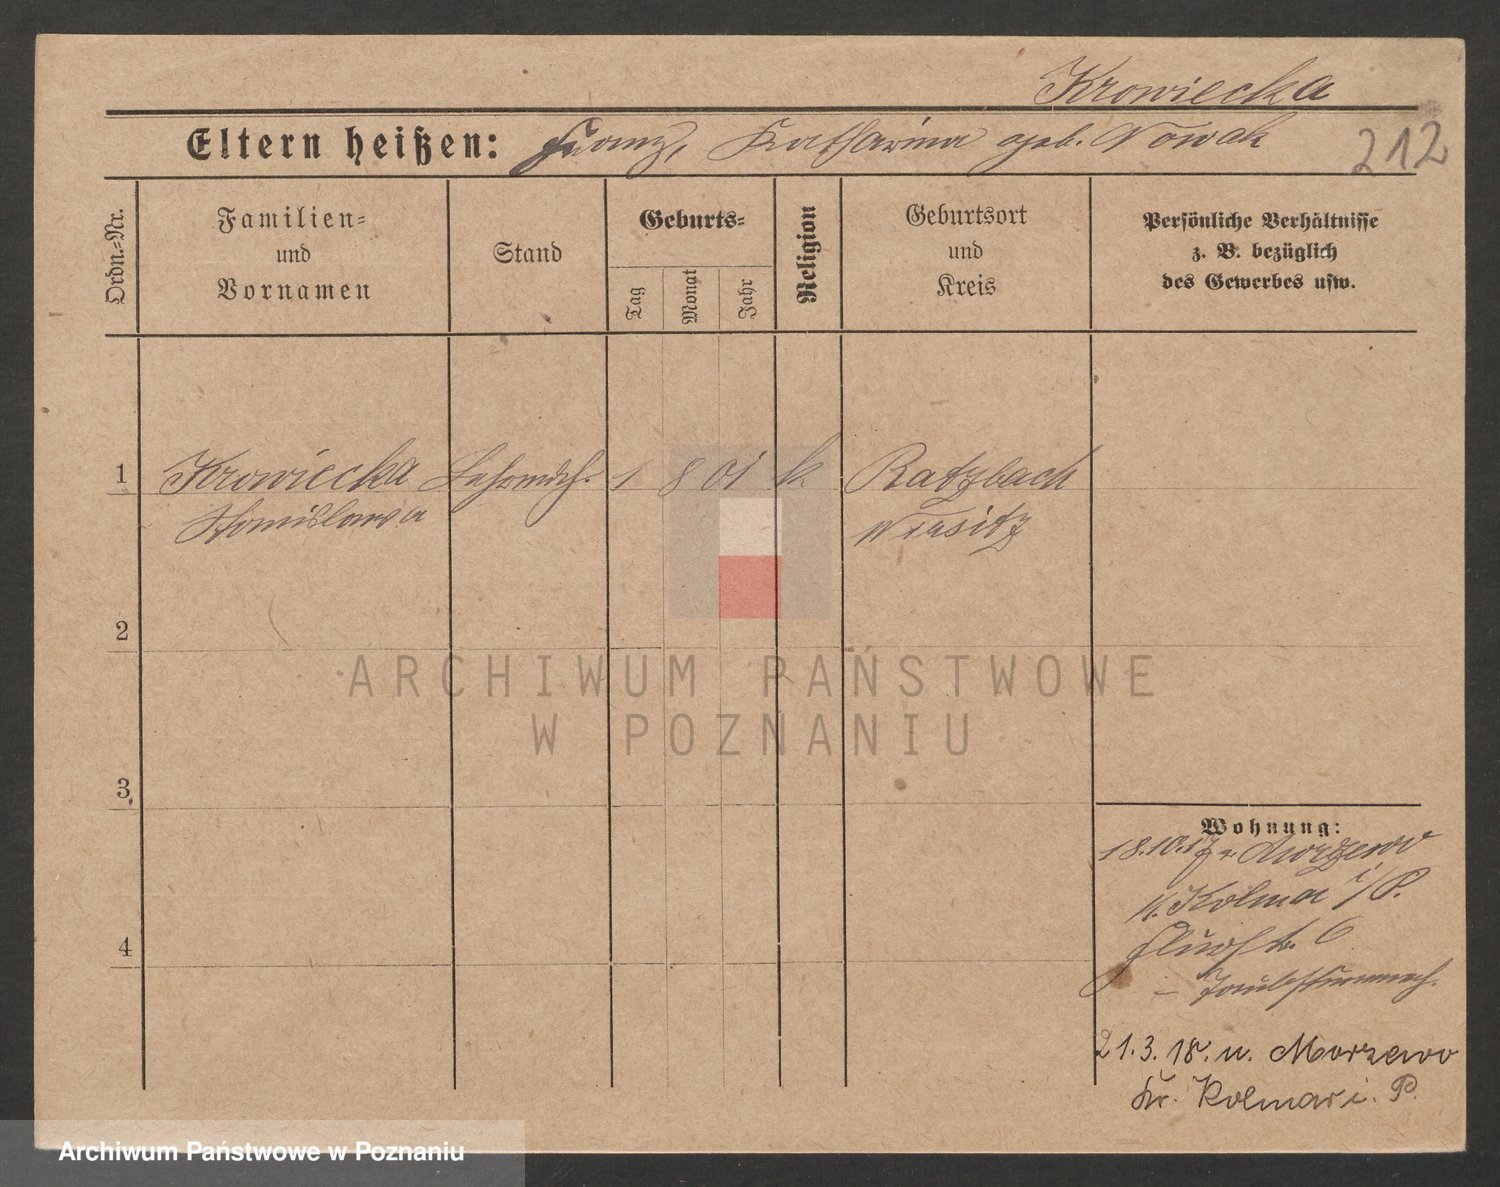 Krowiecka
Eltern heißen: Franz, Katharina geb. Nowak
212
Ordn.-Nr.
Familien-
und
Vornamen
Stand
Geburts-
Tag
Monat
Jahr
Religion
Geburtsort
und
Kreis
Persönliche Verhältnisse
z. B. bezüglich
des Gewerbes usw.
1 Krowiecka Lehrmdch. 1 8 01 k. Ratzbach
Stanislawa Wirsitz
2
ARCHIWUM PAŃSTWOWE
W POZNANIU
3
Wohnung:
18.10.17 v. Morzewo
K. Kolmar i/P.
6
4
– Taubstummch.
21.3.18. n. Morzewo
Kr. Kolmar i. P.
Archiwum Państwowe w Poznaniu